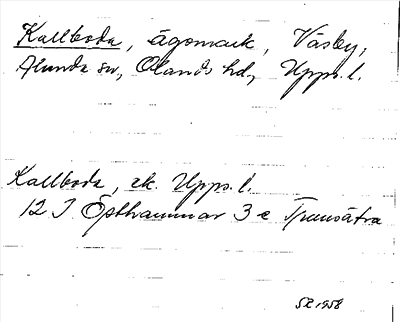 Kallboda, ägomark, Väsby,
Alunda sn, Olands hd, Upps. l.
Kallboda, ek. Upps. l.
12 I Östhammar 3 e Trensätra
SR 1958